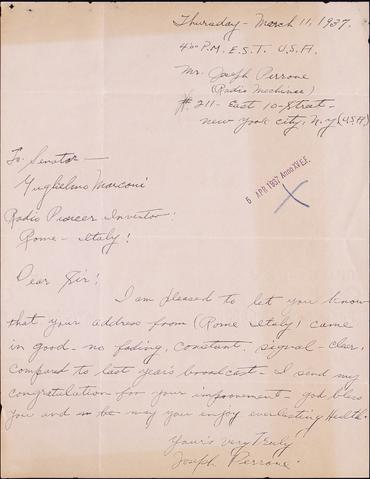 Thursday - March 11, 1937.
4:00 P.M. E.S.T. U.S.A.
Mr. Joseph Perrone
(Radio Mechinic)
# 211 - East 10 - Street -
new York city, N.Y (U.S.A.)
To Senator -
Guglielmo Marconi
Radio Pioneer Inventor:
Rome - Italy!
6 APR. 1937 Anno XV E.F.
Dear Sir!
I am pleased to let you know
that your address from (Rome Italy) came
in good - no fading, constant signal - clear,
compared to last year's broadcast - I send my
congratulation for your improvement - god bless
you and may you enjoy everlasting Health.
Yours Very Truly
Joseph Perrone.